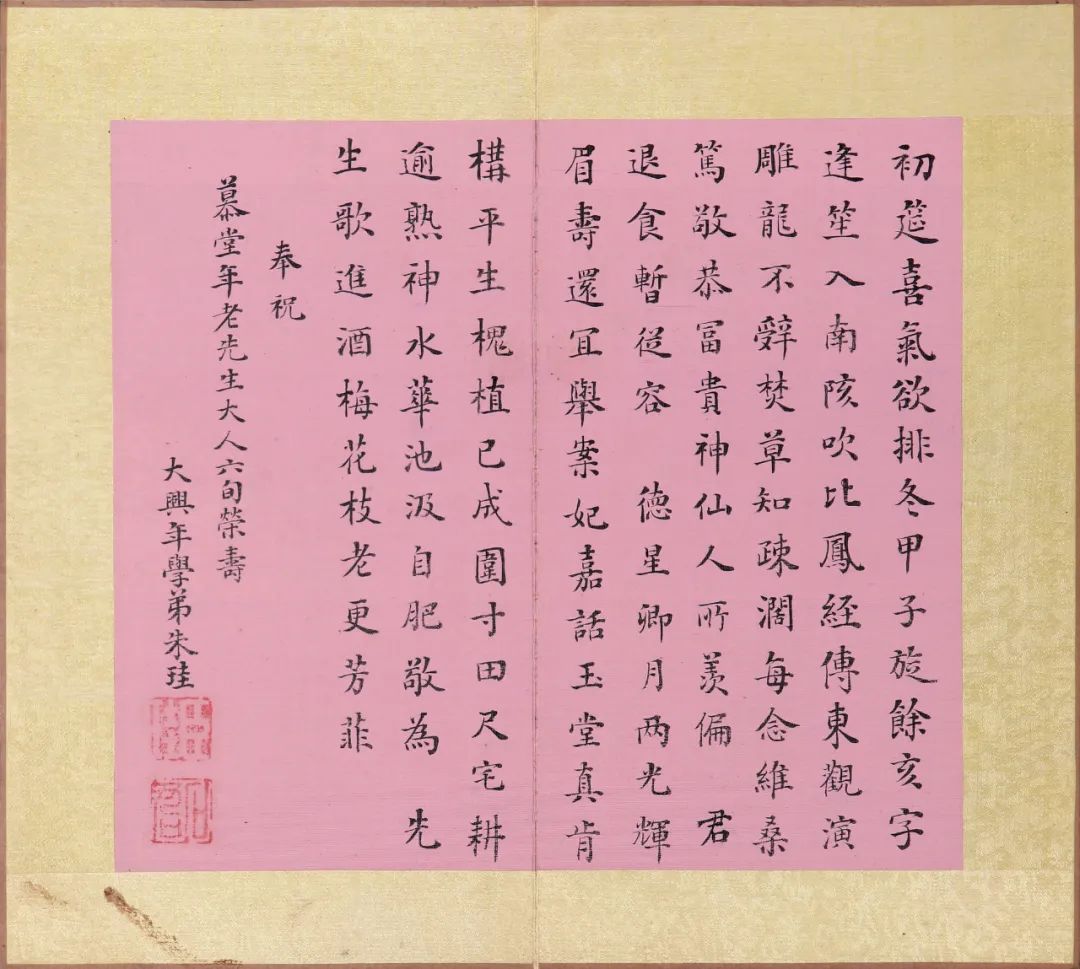 初筵喜氣欲排冬甲子旋餘亥字
逢笙入南陔吹比鳳經傳東觀演
雕龍不辭焚草知疎濶每念維桑
篤敬恭冨貴神仙人所羨偏 君
退食暫従容 德星卿月两光輝
眉壽還冝舉案妃嘉話玉堂真肯
構平生槐植已成圍寸田尺宅耕
逾熟神水華池汲自肥敬為 先
生歌進酒梅花枝老更芳菲
奉祝
慕堂年老先生大人六旬榮壽
大興年學弟朱珪